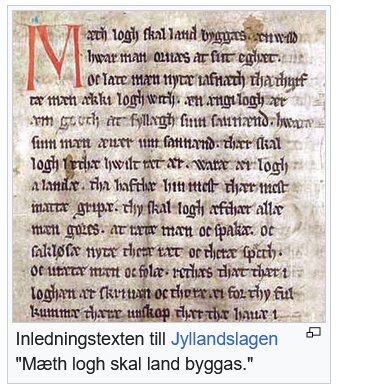 Mæth logh skal land byggæs. æn wild
hwar man ornæs at sit eghæt.
oc late mæn nytæ iafnæth tha thyrf
tæ mæn ækki logh with. æn ængi logh ær
æm goth at fyllægh sum sannænd. hware
sum mæn æuær um sannænd. thær skal
logh lethæ hwilt ræt ær. waræ æi logh
a landæ. tha hafthæ hin mest thær mest
mattæ gripæ. thy skal logh æfthær allæ
mæn gøres. at rætæ mæn oc spakæ. oc
sakløsæ nytæ theræ ræt oc theræ spæth.
oc uræte mæn oc folæ. rethæs thæt thær i
loghæn ær skriuæn oc thoræ æi for thy ful
kummæ theræ unskop thær the hauæ i
Inledningstexten till Jyllandslagen
"Mæth logh skal land byggas."